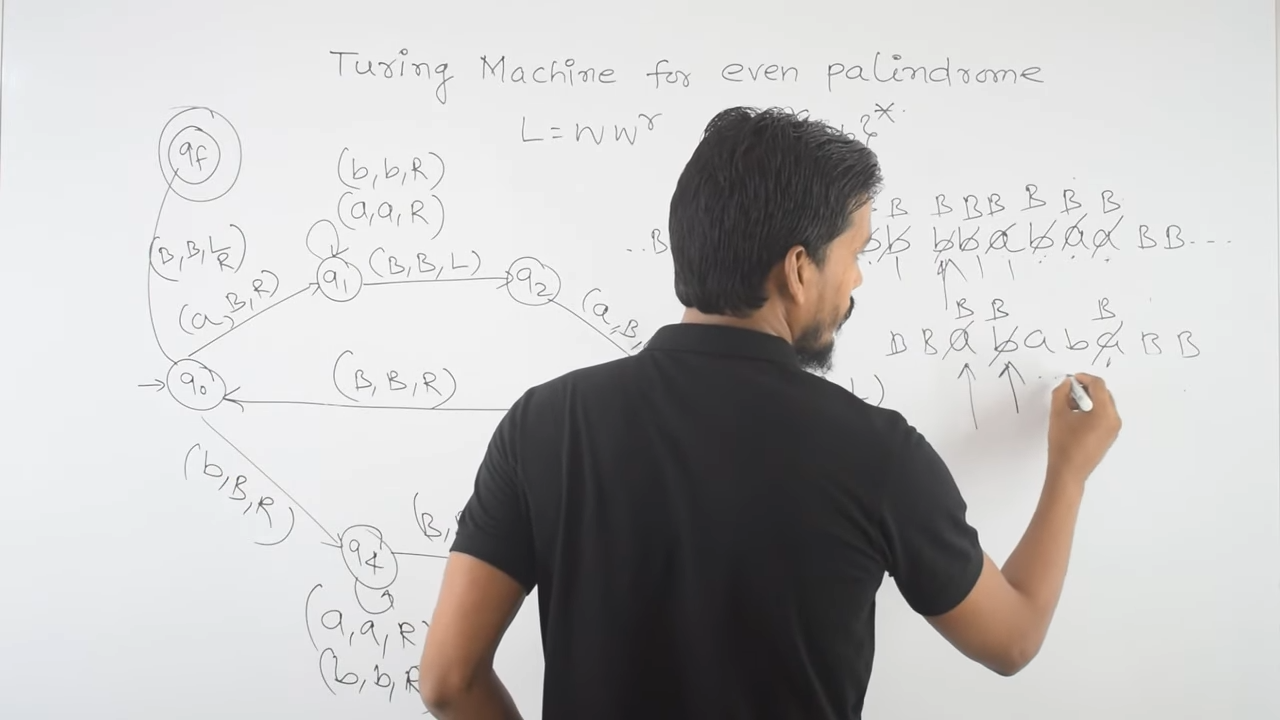 Turing Machine for even palindrome
L = w w^r
b}*
qf
(b, b, R)
(a, a, R)
(B, B, L/R)
(a, B, R)
q1
(B, B, L)
q2
(a, B
q0
(B, B, R)
L)
(b, B, R)
q4
(B,
(a, a, R)
(b, b, R
B B B B B B B
..B b b b b a b a a B B ...
B B B
B B a b a b a B B